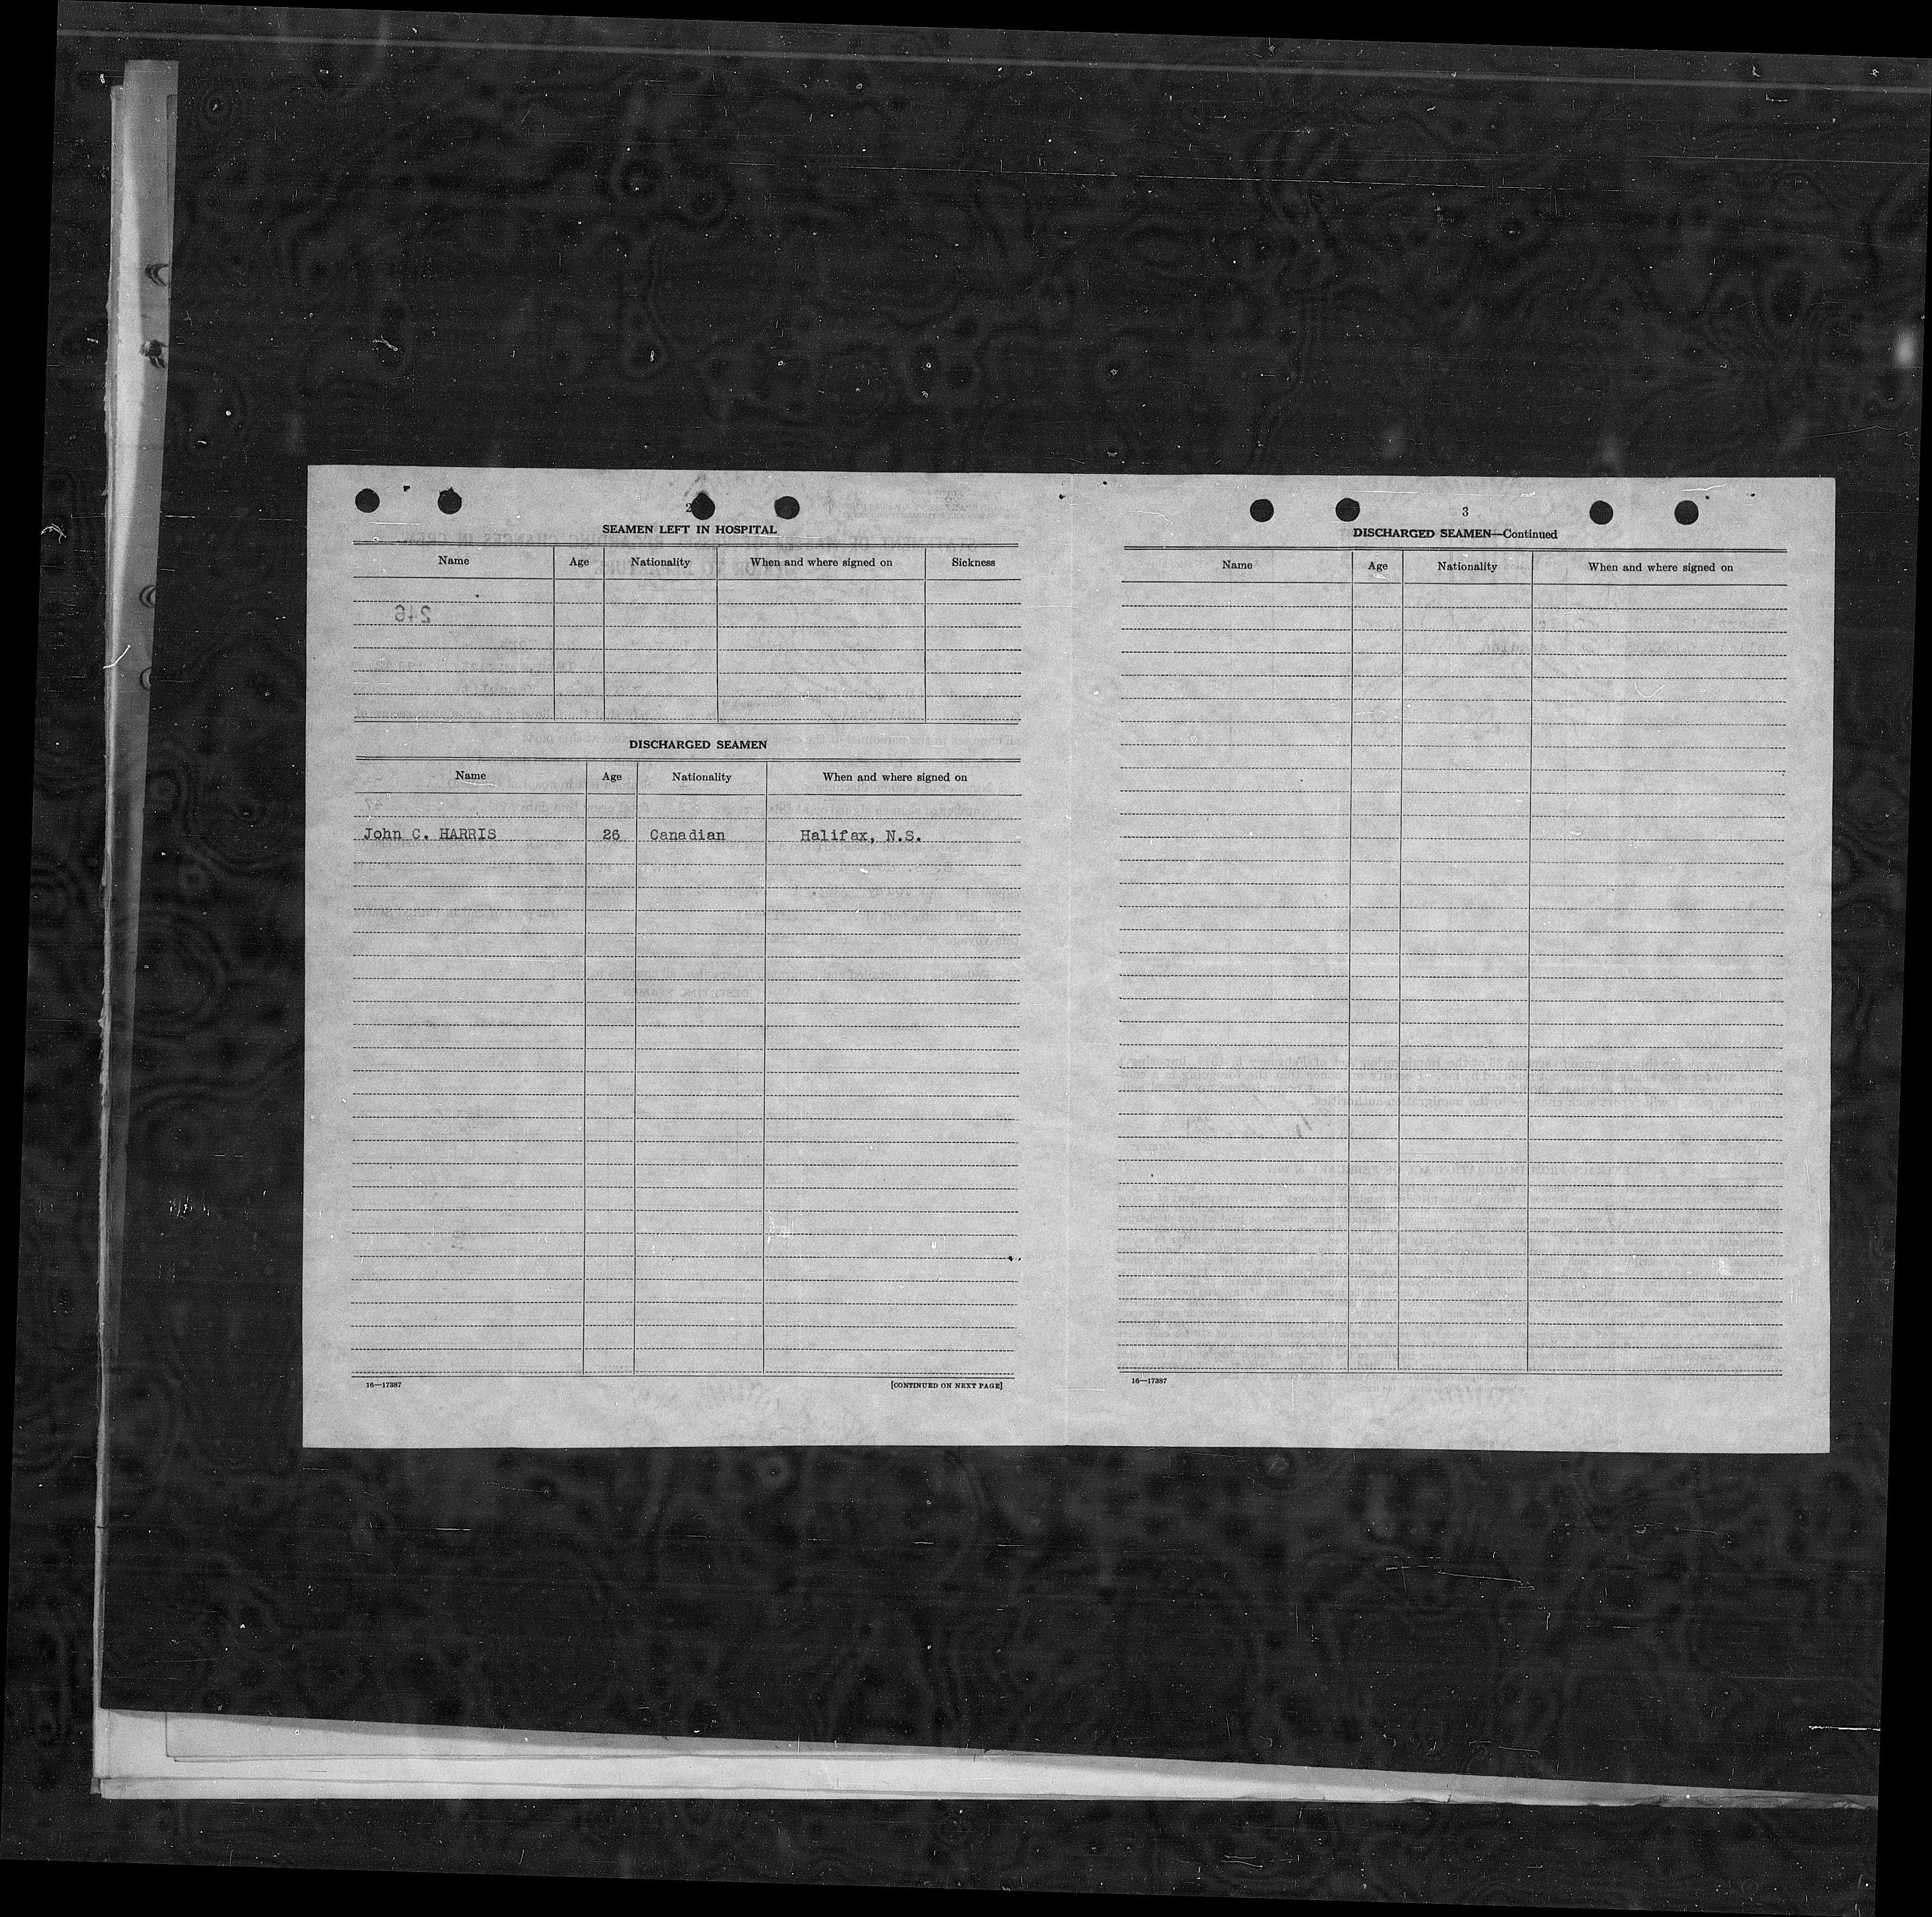 2
SEAMEN LEFT IN HOSPITAL
Name Age Nationality When and where signed on Sickness
246
DISCHARGED SEAMEN
Name Age Nationality When and where signed on
John C. HARRIS 26 Canadian Halifax, N.S.
16—17387 [CONTINUED ON NEXT PAGE]
3
DISCHARGED SEAMEN—Continued
Name Age Nationality When and where signed on
16—17387